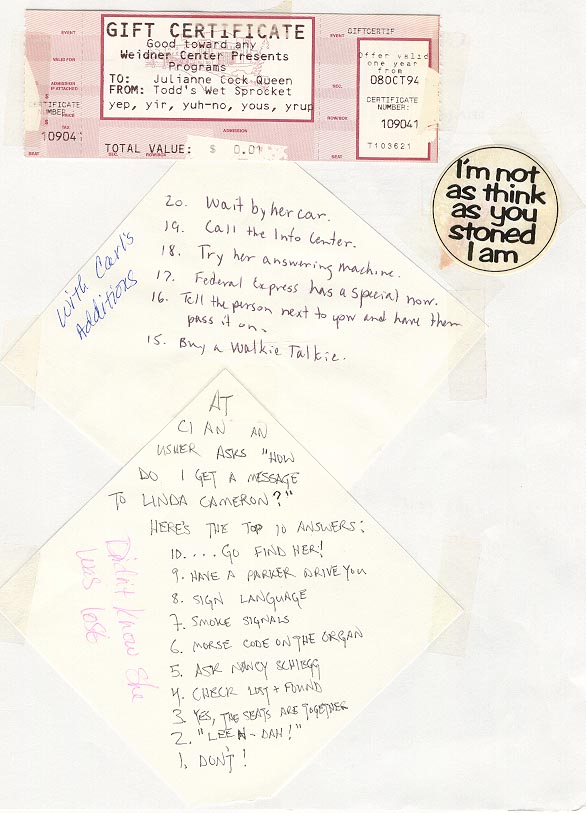 EVENT
VALID FOR
ADMISSION
IF ATTACHED
$
CERTIFICATE
NUMBER
PRICE
TAX
109041
SEAT
GIFT CERTIFICATE
Good toward any
Weidner Center Presents
Programs
TO: Julianne Cock Queen
FROM: Todd's Wet Sprocket
yep, yir, yuh-no, yous, yrup
ADMISSION
TOTAL VALUE: $ 0.01
SEC. ROW/BOX
EVENT
SEC.
ROW/BOX
SEAT
GIFTCERTIF
Offer valid
one year
from
08OCT94
CERTIFICATE
NUMBER:
109041
T103621
I'm not
as think
as you
stoned
I am
With Carl's
Additions
20. Wait by her car.
19. Call the Info Center.
18. Try her answering machine.
17. Federal Express has a special now.
16. Tell the person next to you and have them
pass it on.
15. Buy a Walkie Talkie.
AT
CI AN AN
USHER ASKS "HOW
DO I GET A MESSAGE
TO LINDA CAMERON?"
HERE'S THE TOP 10 ANSWERS:
10. . . . . GO FIND HER!
9. HAVE A PARKER DRIVE YOU
8. SIGN LANGUAGE
7. SMOKE SIGNALS
6. MORSE CODE ON THE ORGAN
5. ASK NANCY SCHIEGG
4. CHECK LOST + FOUND
3. YES, THE SEATS ARE TOGETHER
2. "LEEN-DAH!"
1. DON'T!
Didn't Know She
was lost